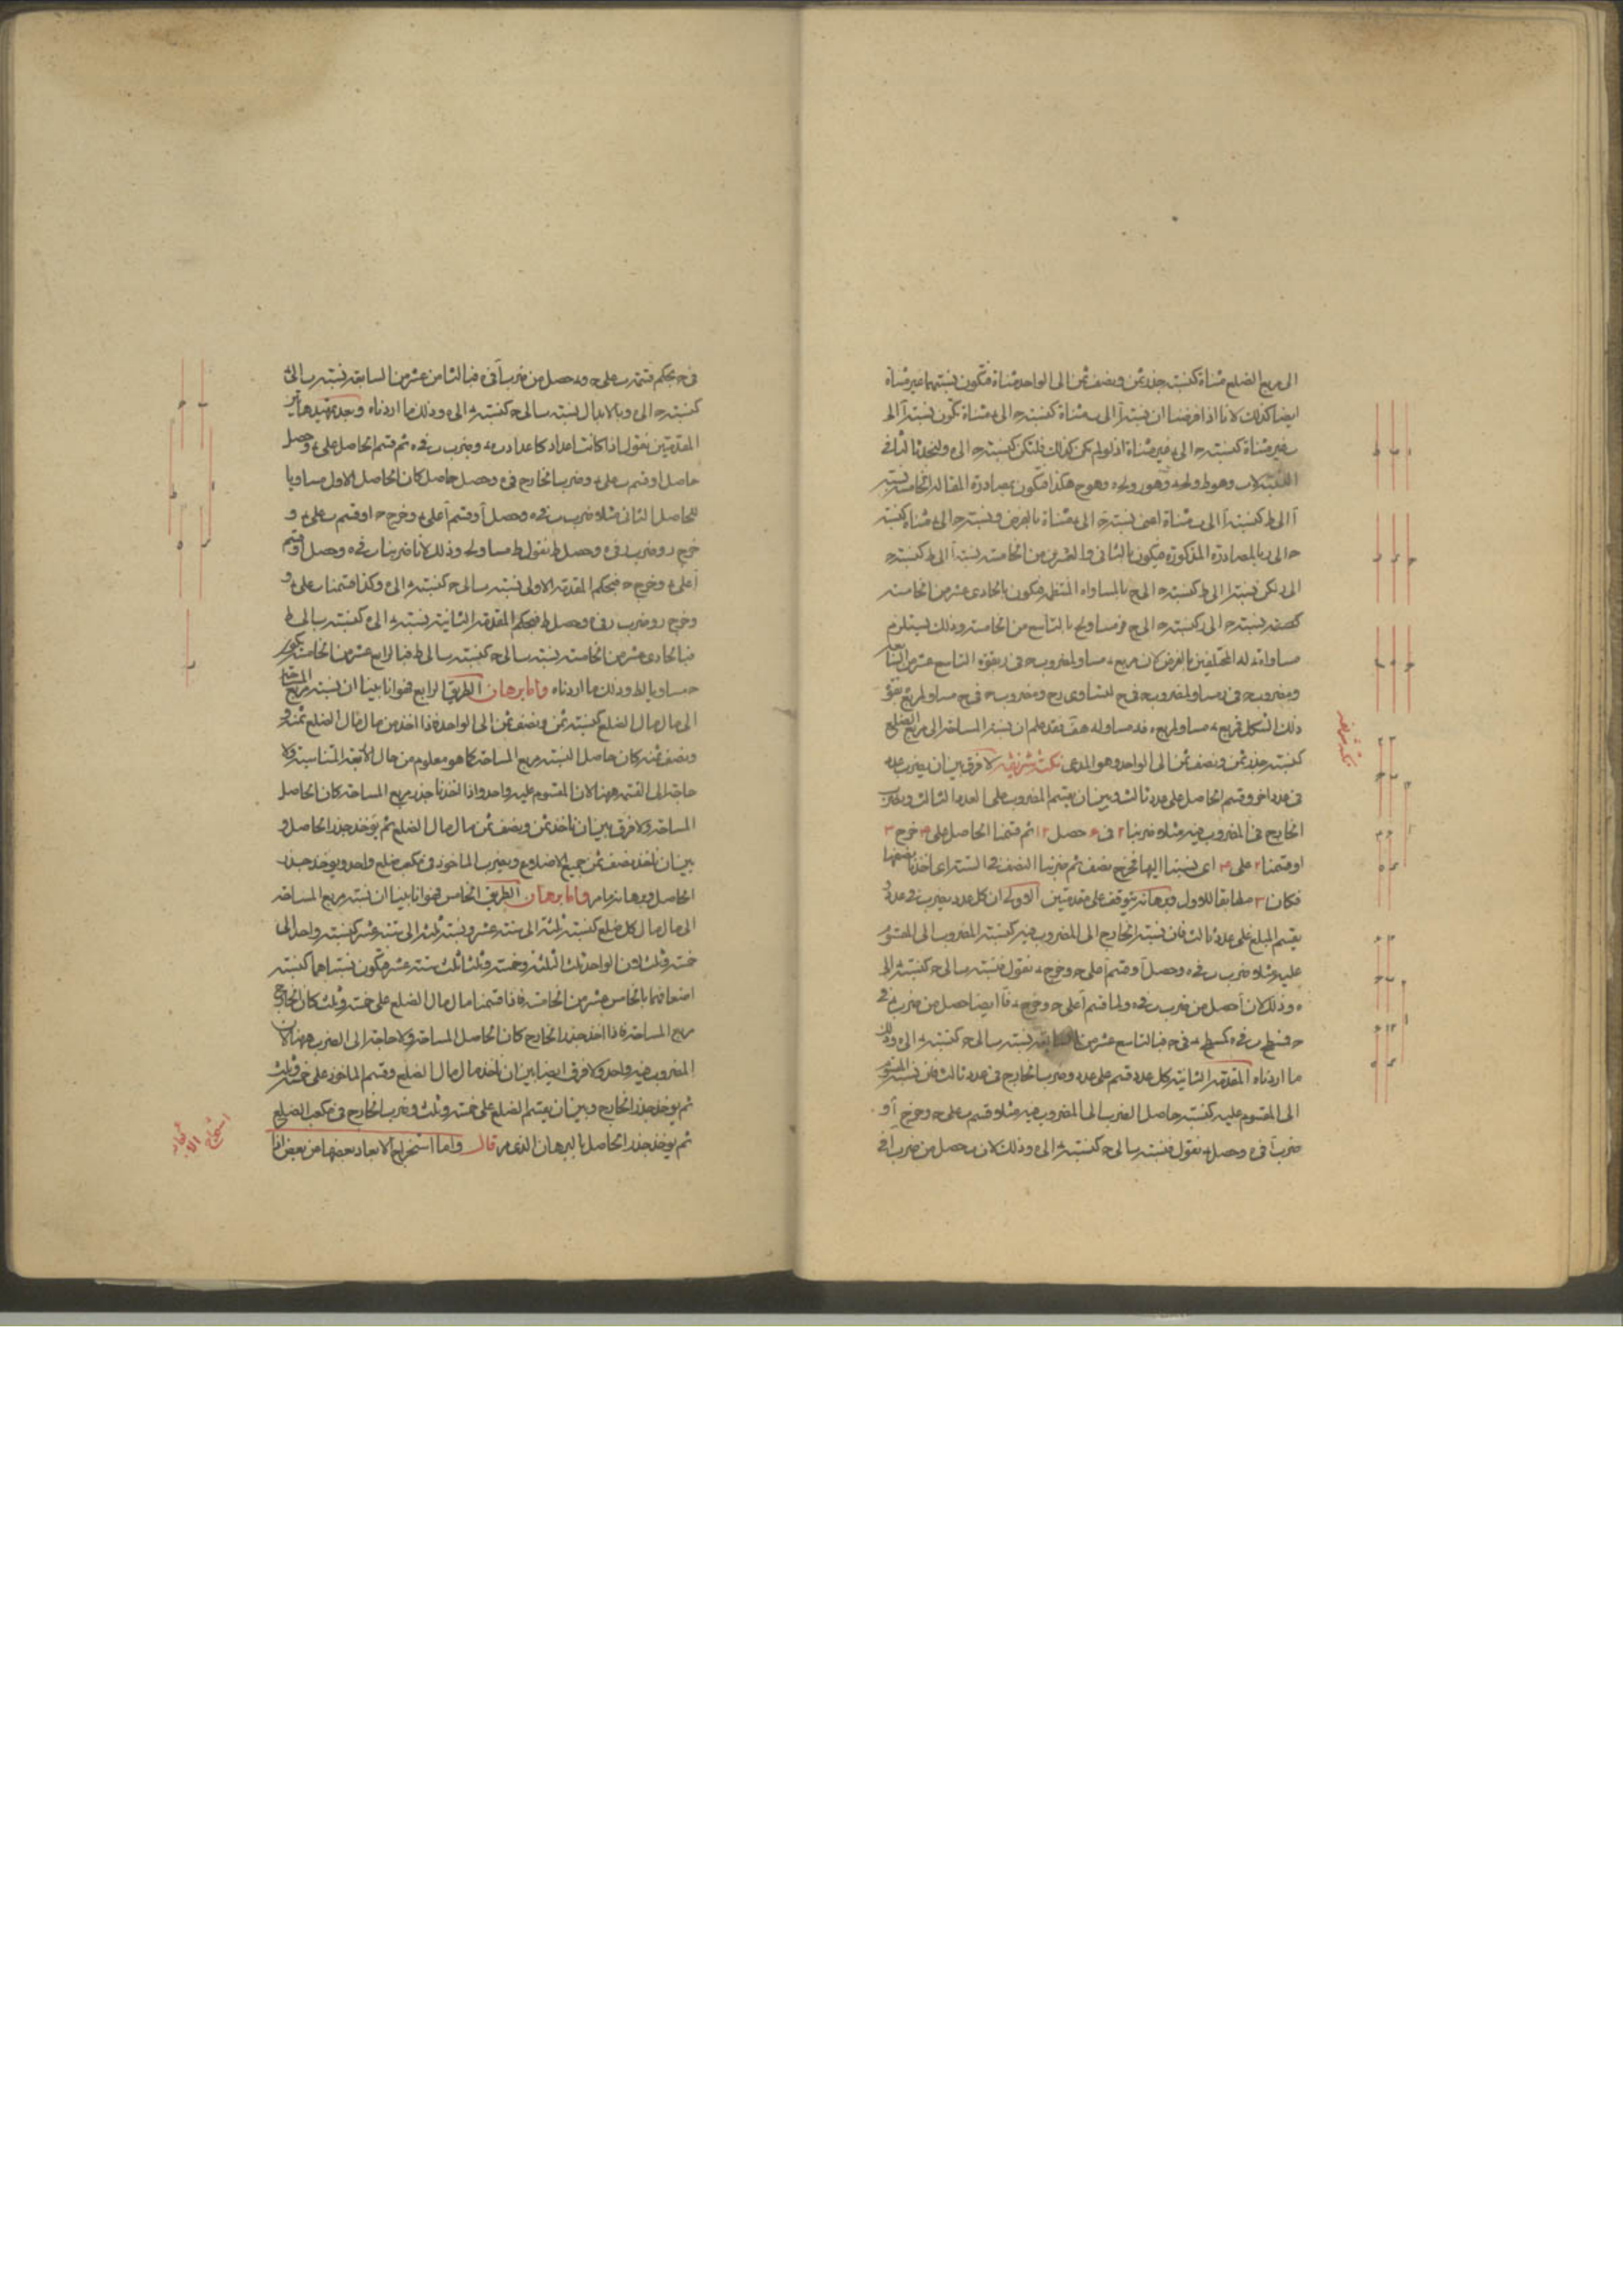 الى مربع الضلع مثناة كنسبة جذر ثمن ونصف ثمن الى الواحد مثناة فتكون نسبتهما غير مثناة
ايضا كذلك لانا اذا فرضنا ان نسبة آ الى ب مثناة كنسبة ح الى ء مثناة تكون نسبة آ الى
ب غير مثناة كنسبة ح الى ء غير مثناة اذ لو لم يكن كذلك فلتكن كنسبة ح الى ه
آ الى ط كنسبة آ الى ب مثناة اعنى نسبة ح الى ء مثناة بالفرض ونسبة ح الى ء مثناة كنسبة
ح الى ر بالمصادرة المذكورة فيكون بالثانى والعشرين من الخامسة نسبة آ الى ط كنسبة ح
الى ر لكن نسبة آ الى ط كنسبة ح الى ح بالمساواة المنتظمة فيكون بالحادى عشر من الخامسة
نسبة ح الى ر كنسبة ح الى ح فر مساو لح بالتاسع من الخامسة وذلك يستلزم
ذلك الشكل فمربع ء مساو لمربع ه فء مساو له هف فقد علم ان نسبة المساحة الى مربع الضلع
كنسبة جذر ثمن ونصف ثمن الى الواحد وهو المدعى نكتة شريفة لا فرق بين ان يضرب عدد
فى عدد اخر وقسم الحاصل على عدد ثالث وبين ان يقسم المضروب على العدد الثالث ويضرب
الخارج فى المضروب فيه مثلا ضربنا ٢ فى ٦ حصل ١٢ ثم قسمنا الحاصل على ٤ خرج ٣
او قسمنا ٢ على ٤ اى نسبنا اليها فخرج نصف ثم ضربنا النصف فى الستة اى اخذنا نصفها
فكان ٣ مطابقا للاول وبرهانه يتوقف على مقدمتين الاولى ان كل عدد يضرب فى عدد و
يقسم المبلغ على عدد ثالث فان نسبة الخارج الى المضروب فيه كنسبة المضروب الى المقسوم
عليه مثلا ضرب ب فى ه وحصل آ وقسم آ على ح وخرج ء نقول فنسبة ب الى ح كنسبة ء الى
ه وذلك لان آ حصل من ضرب ب فى ه ولما قسم آ على ح وخرج ء فآ ايضا حصل من ضرب ء فى
ح فسطح ب فى ه كسطح ء فى ح فبالتاسع عشر من السابعة نسبة ب الى ح كنسبة ء الى ه وذلك
ما اردناه المقدمة الثانية كل عدد قسم على عدد وضرب الخارج فى عدد ثالث فان نسبة المقسوم
الى المقسوم عليه كنسبة حاصل الضرب الى المضروب فيه مثلا قسم ب على ح وخرج آ و
ضرب آ فى ه وحصل ء نقول فنسبة ب الى ح كنسبة ء الى ه وذلك لان ء حصل من ضرب آ فى
نكتة شريفة
فى ح بحكم قسمة ب على ح وء حصل من ضرب آ فى ه فبالثامن عشر من السابعة نسبة ب الى ء
كنسبة ح الى ه وبالابدال نسبة ب الى ح كنسبة ء الى ه وذلك ما اردناه وبعد تمهيد هاتين
المقدمتين نقول اذا كانت اعداد كاعداد ب ح ء وضرب ب فى ه ثم قسم الحاصل على ء وحصل
حاصل او قسم ب على ء وضرب الخارج فى ه وحصل حاصل كان الحاصل الاول مساويا
للحاصل الثانى مثلا ضرب ب فى ه وحصل آ وقسم آ على ء وخرج ح او قسم ب على ء و
خرج ر وضرب ر فى ه وحصل ط نقول ط مساو لح وذلك لانا ضربنا ب فى ه وحصل آ وقسم
آ على ء وخرج ح فبحكم المقدمة الاولى نسبة ب الى ء كنسبة ح الى ه وكذا قسمنا ب على ء و
وخرج ر وضرب ر فى ه وحصل ط فبحكم المقدمة الثانية
ح مساويا لط وذلك ما اردناه واما برهان الطريق الرابع فهو انا بينا ان نسبة مربع المساحة
الى مال مال الضلع كنسبة ثمن ونصف ثمن الى الواحد فاذا اخذ من مال مال الضلع ثمنه و
ونصف ثمنه كان حاصل النسبة مربع المساحة كما هو معلوم من حال الاربعة المتناسبة ولا
حاجة الى القسمة ههنا لان المقسوم عليه واحد واذا اخذنا جذر مربع المساحة كان الحاصل
المساحة ولا فرق بين ان ناخذ ثمن ونصف ثمن مال مال الضلع ثم يؤخذ جذر الحاصل و
بين ان ناخذ نصف ثمن جميع الاضلاع ويضرب الماخوذ فى مكعب ضلع واحد ويؤخذ جذر
الحاصل وبرهانه ما مر واما برهان الطريق الخامس فهو انا بينا ان نسبة مربع المساحة
الى مال مال كل ضلع كنسبة ثلثة الى ستة عشر ونسبة ثلثة الى ستة عشر كنسبة واحد الى
خمسة وثلث لان الواحد ثلث الثلثة وخمسة وثلث ثلث ستة عشر فتكون نسبتاهما كنسبة
اضعافهما بالخامس عشر من الخامسة فاذا قسمنا مال مال الضلع على خمسة وثلث كان الخارج
مربع المساحة فاذا اخذ جذر الخارج كان الحاصل المساحة ولا حاجة الى الضرب ههنا لان
المضروب فيه واحد ولا فرق ايضا بين ان ناخذ مال مال الضلع وقسم الماخوذ على خمسة وثلث
ثم يؤخذ جذر الخارج وبين ان يقسم الضلع على خمسة وثلث وضرب الخارج فى مكعب الضلع
ثم يؤخذ جذر الحاصل بالبرهان الذى مر قال واما استخراج الابعاد بعضها من بعض اذا
استخراج الابعاد